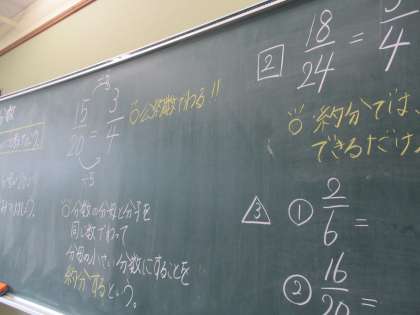 ÷5
15/20 = 3/4
÷5
公約数でわる!!
分数の分母と分子を
同じ数でわって
分母の小さい分数にすることを
約分するという。
2 18/24 = 3/4
約分では、
できるだけ
3 ① 2/6 =
② 16/20 =